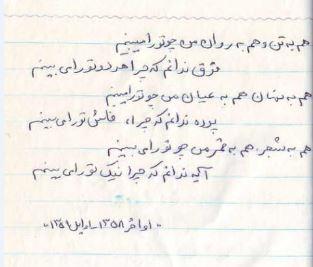 هم به تن و هم به روان من چو تو را میبینم
فرق ندانم که چرا هر دو تو را می بینم
هم به نهان هم به عیان من چو تو را میبینم
پرده ندانم که چرا، فاش تو را می بینم
هم به شجر، هم به ثمر من چو تو را می بینم
آگه ندانم که چرا نیک تو را می بینم
"اواخر ۱۳۵۸ - اوایل ۱۳۵۹"